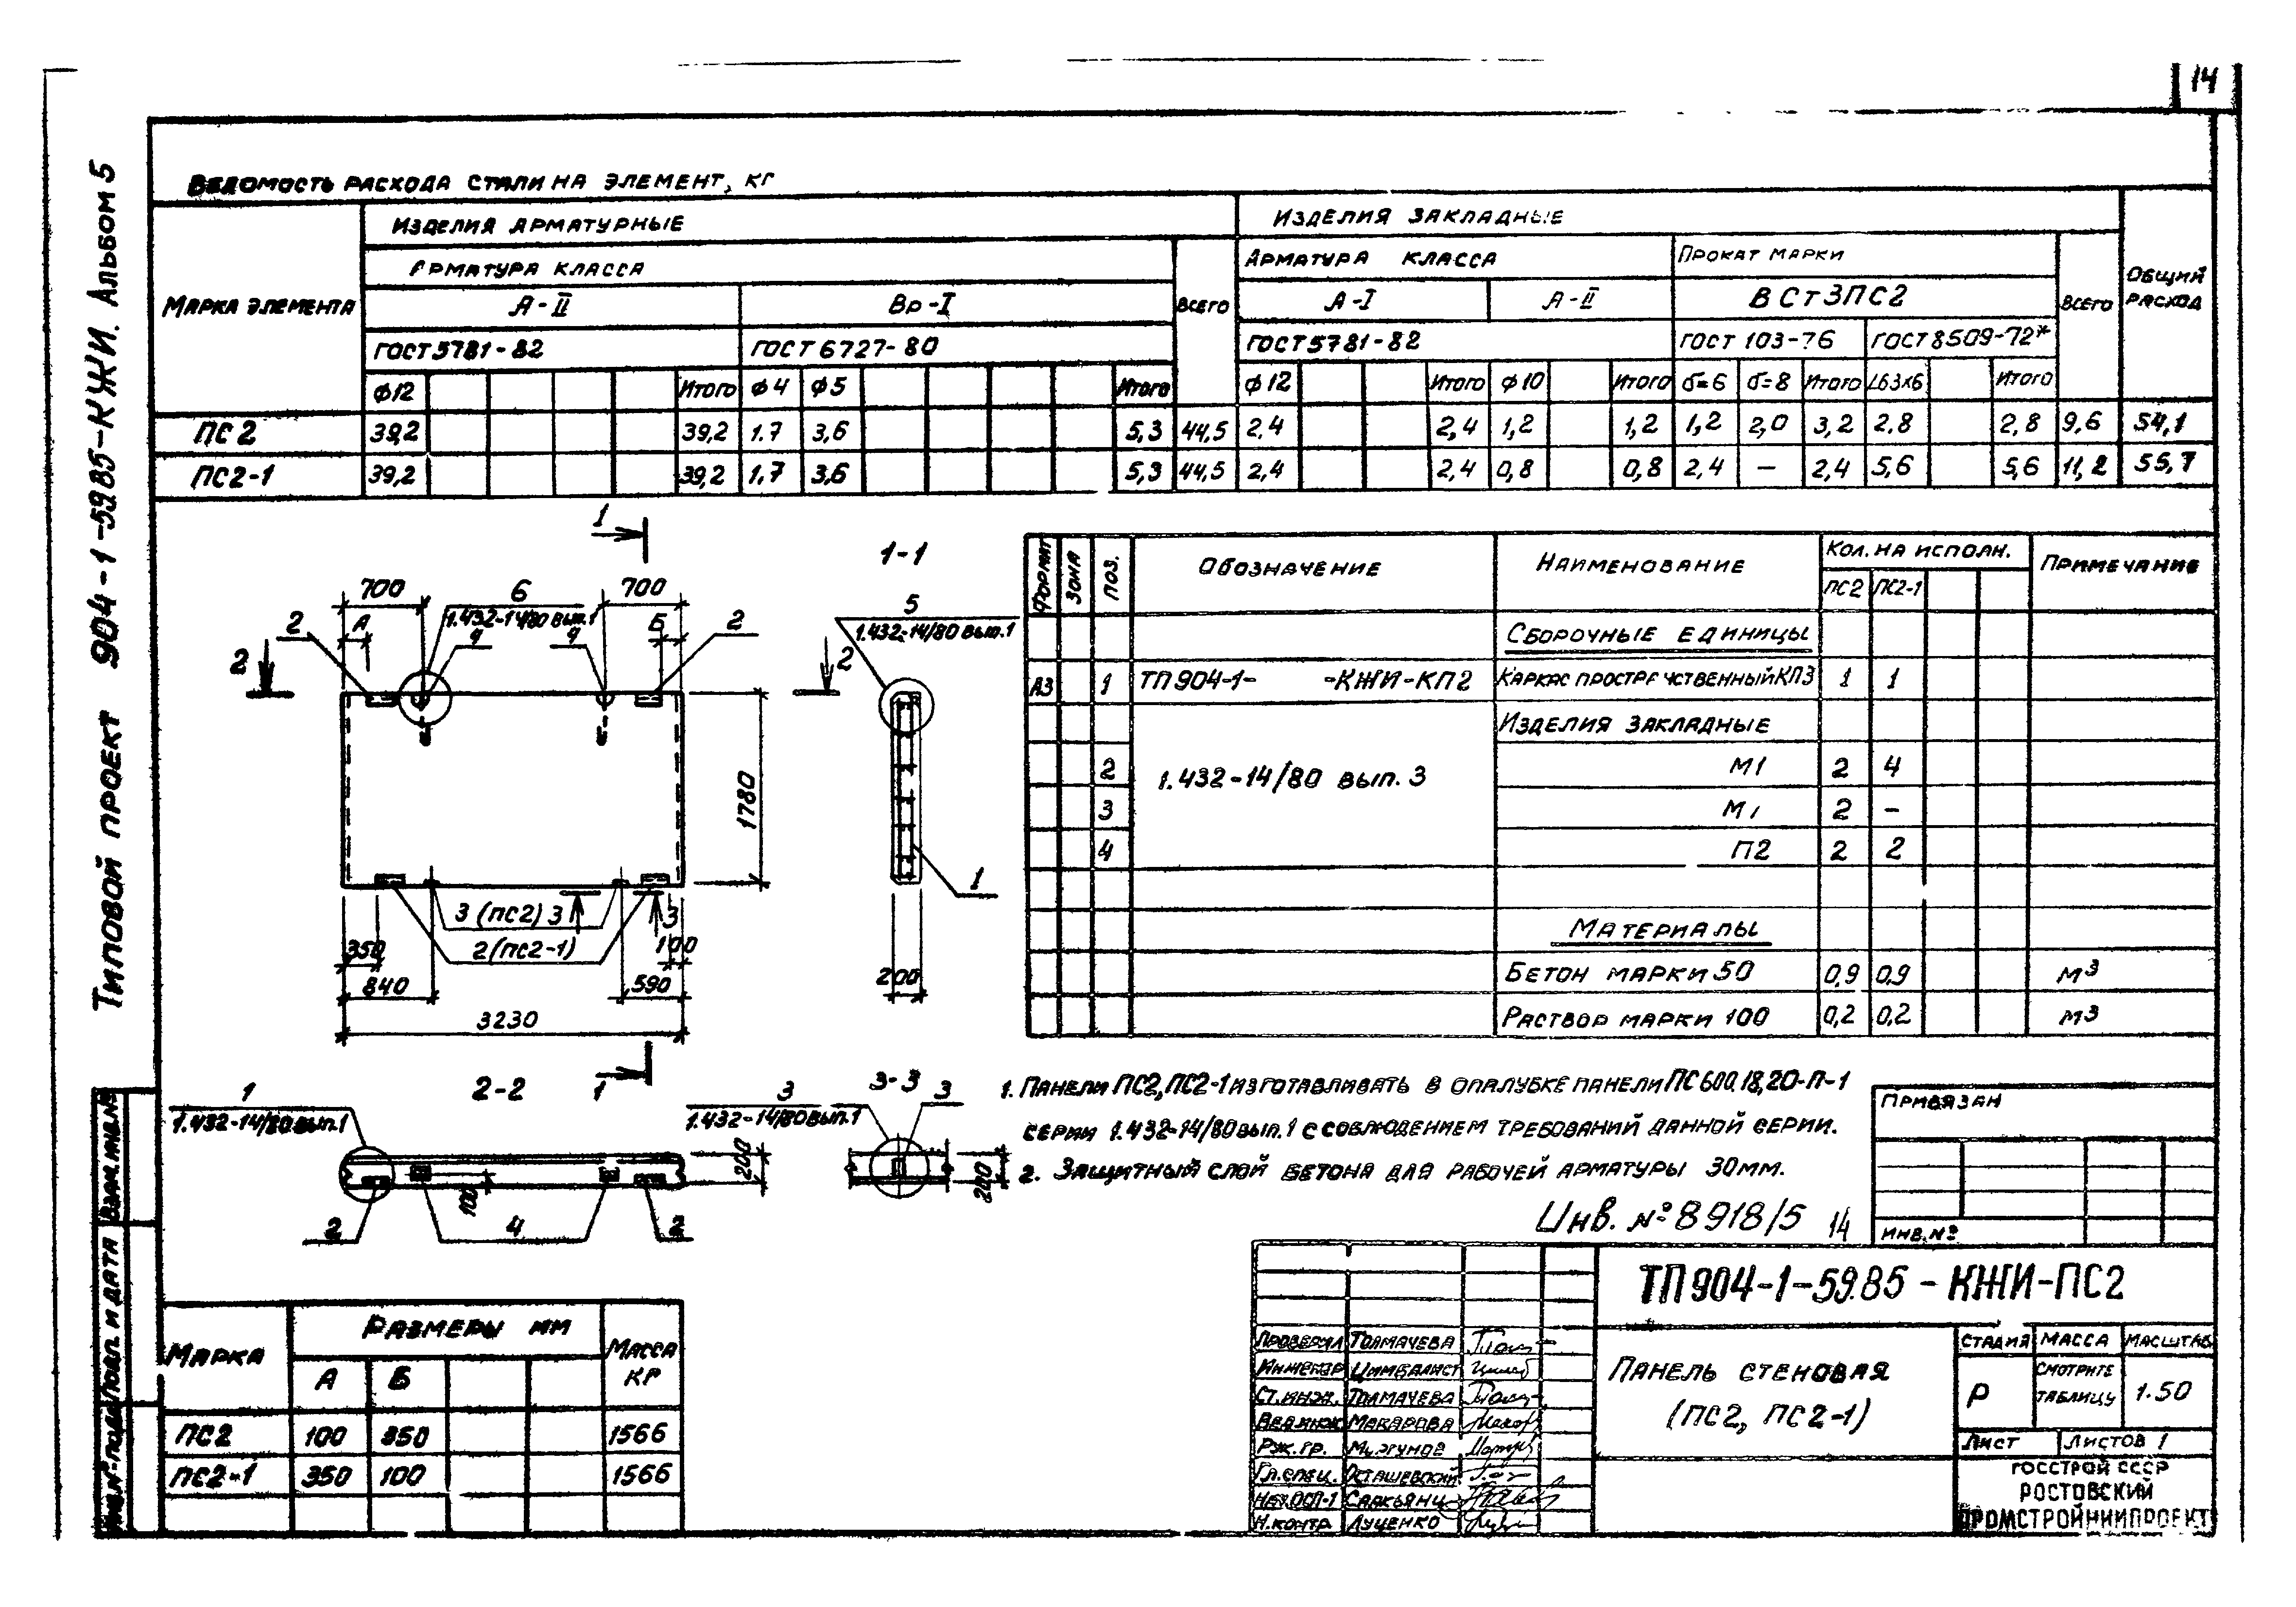 14
Типовой проект 904-1-59.85-КЖИ. Альбом 5
Ведомость расхода стали на элемент, кг
Марка элемента
Изделия арматурные
Изделия закладные
Общий расход
Арматура класса
Всего
Арматура класса
Прокат марки
Всего
А-II
Вр-I
А-I
А-II
ВСт3ПС2
ГОСТ 5781-82
ГОСТ 6727-80
ГОСТ 5781-82
ГОСТ 103-76
ГОСТ 8509-72*
Ф12 Итого Ф4 Ф5 Итого Ф12 Итого Ф10 Итого σ=6 σ=8 Итого L63х6 Итого
ПС2 39,2 39,2 1.7 3,6 5,3 44,5 2,4 2,4 1,2 1,2 1,2 2,0 3,2 2,8 2,8 9,6 54,1
ПС2-1 39,2 39,2 1,7 3,6 5,3 44,5 2,4 2,4 0,8 0,8 2,4 — 2,4 5,6 5,6 11,2 55,7
1
700 6 700
1.432-14/80 вып.1
2 А 4 4 Б 2
2 2
1780
3 (ПС2) 3 3
2 (ПС2-1)
350 100
840 590
3230
1
1-1
5
1.432-14/80 вып.1
1
200
2-2
1
1.432-14/80 вып.1
200
100
2 4 2
3-3
3 3
1.432-14/80 вып.1
200
Формат Зона Поз. Обозначение Наименование Кол. на исполн. Примечание
ПС2 ПС2-1
Сборочные единицы
А3 1 ТП 904-1- -КЖИ-КП2 Каркас пространственный КП3 1 1
Изделия закладные
2 1.432-14/80 вып. 3 М1 2 4
3 М1 2 -
4 П2 2 2
Материалы
Бетон марки 50 0,9 0,9 м3
Раствор марки 100 0,2 0,2 м3
1. Панели ПС2, ПС2-1 изготавливать в опалубке панели ПС600.18,20-П-1
серии 1.432-14/80 вып.1 с соблюдением требований данной серии.
2. Защитный слой бетона для рабочей арматуры 30мм.
Инв. № 8918/5 14
Привязан
Инв. №
Марка Размеры мм Масса кг
А Б
ПС2 100 350 1566
ПС2-1 350 100 1566
Взам. инв. №
Подп. и дата
Инв. № подл.
ТП 904-1-59.85-КЖИ-ПС2
Проверил Толмачева
Инженер Цимбалист
Ст. инж. Толмачева
Вед. инж. Макарова
Рук. гр.
Гл. спец. Осташевский
Нач. ОСП-1 Саакьянц
Н. контр. Луценко
Панель стеновая
(ПС2, ПС2-1)
Стадия Масса Масштаб
Р Смотрите таблицу 1:50
Лист Листов 1
Госстрой СССР
Ростовский
Промстройниипроект